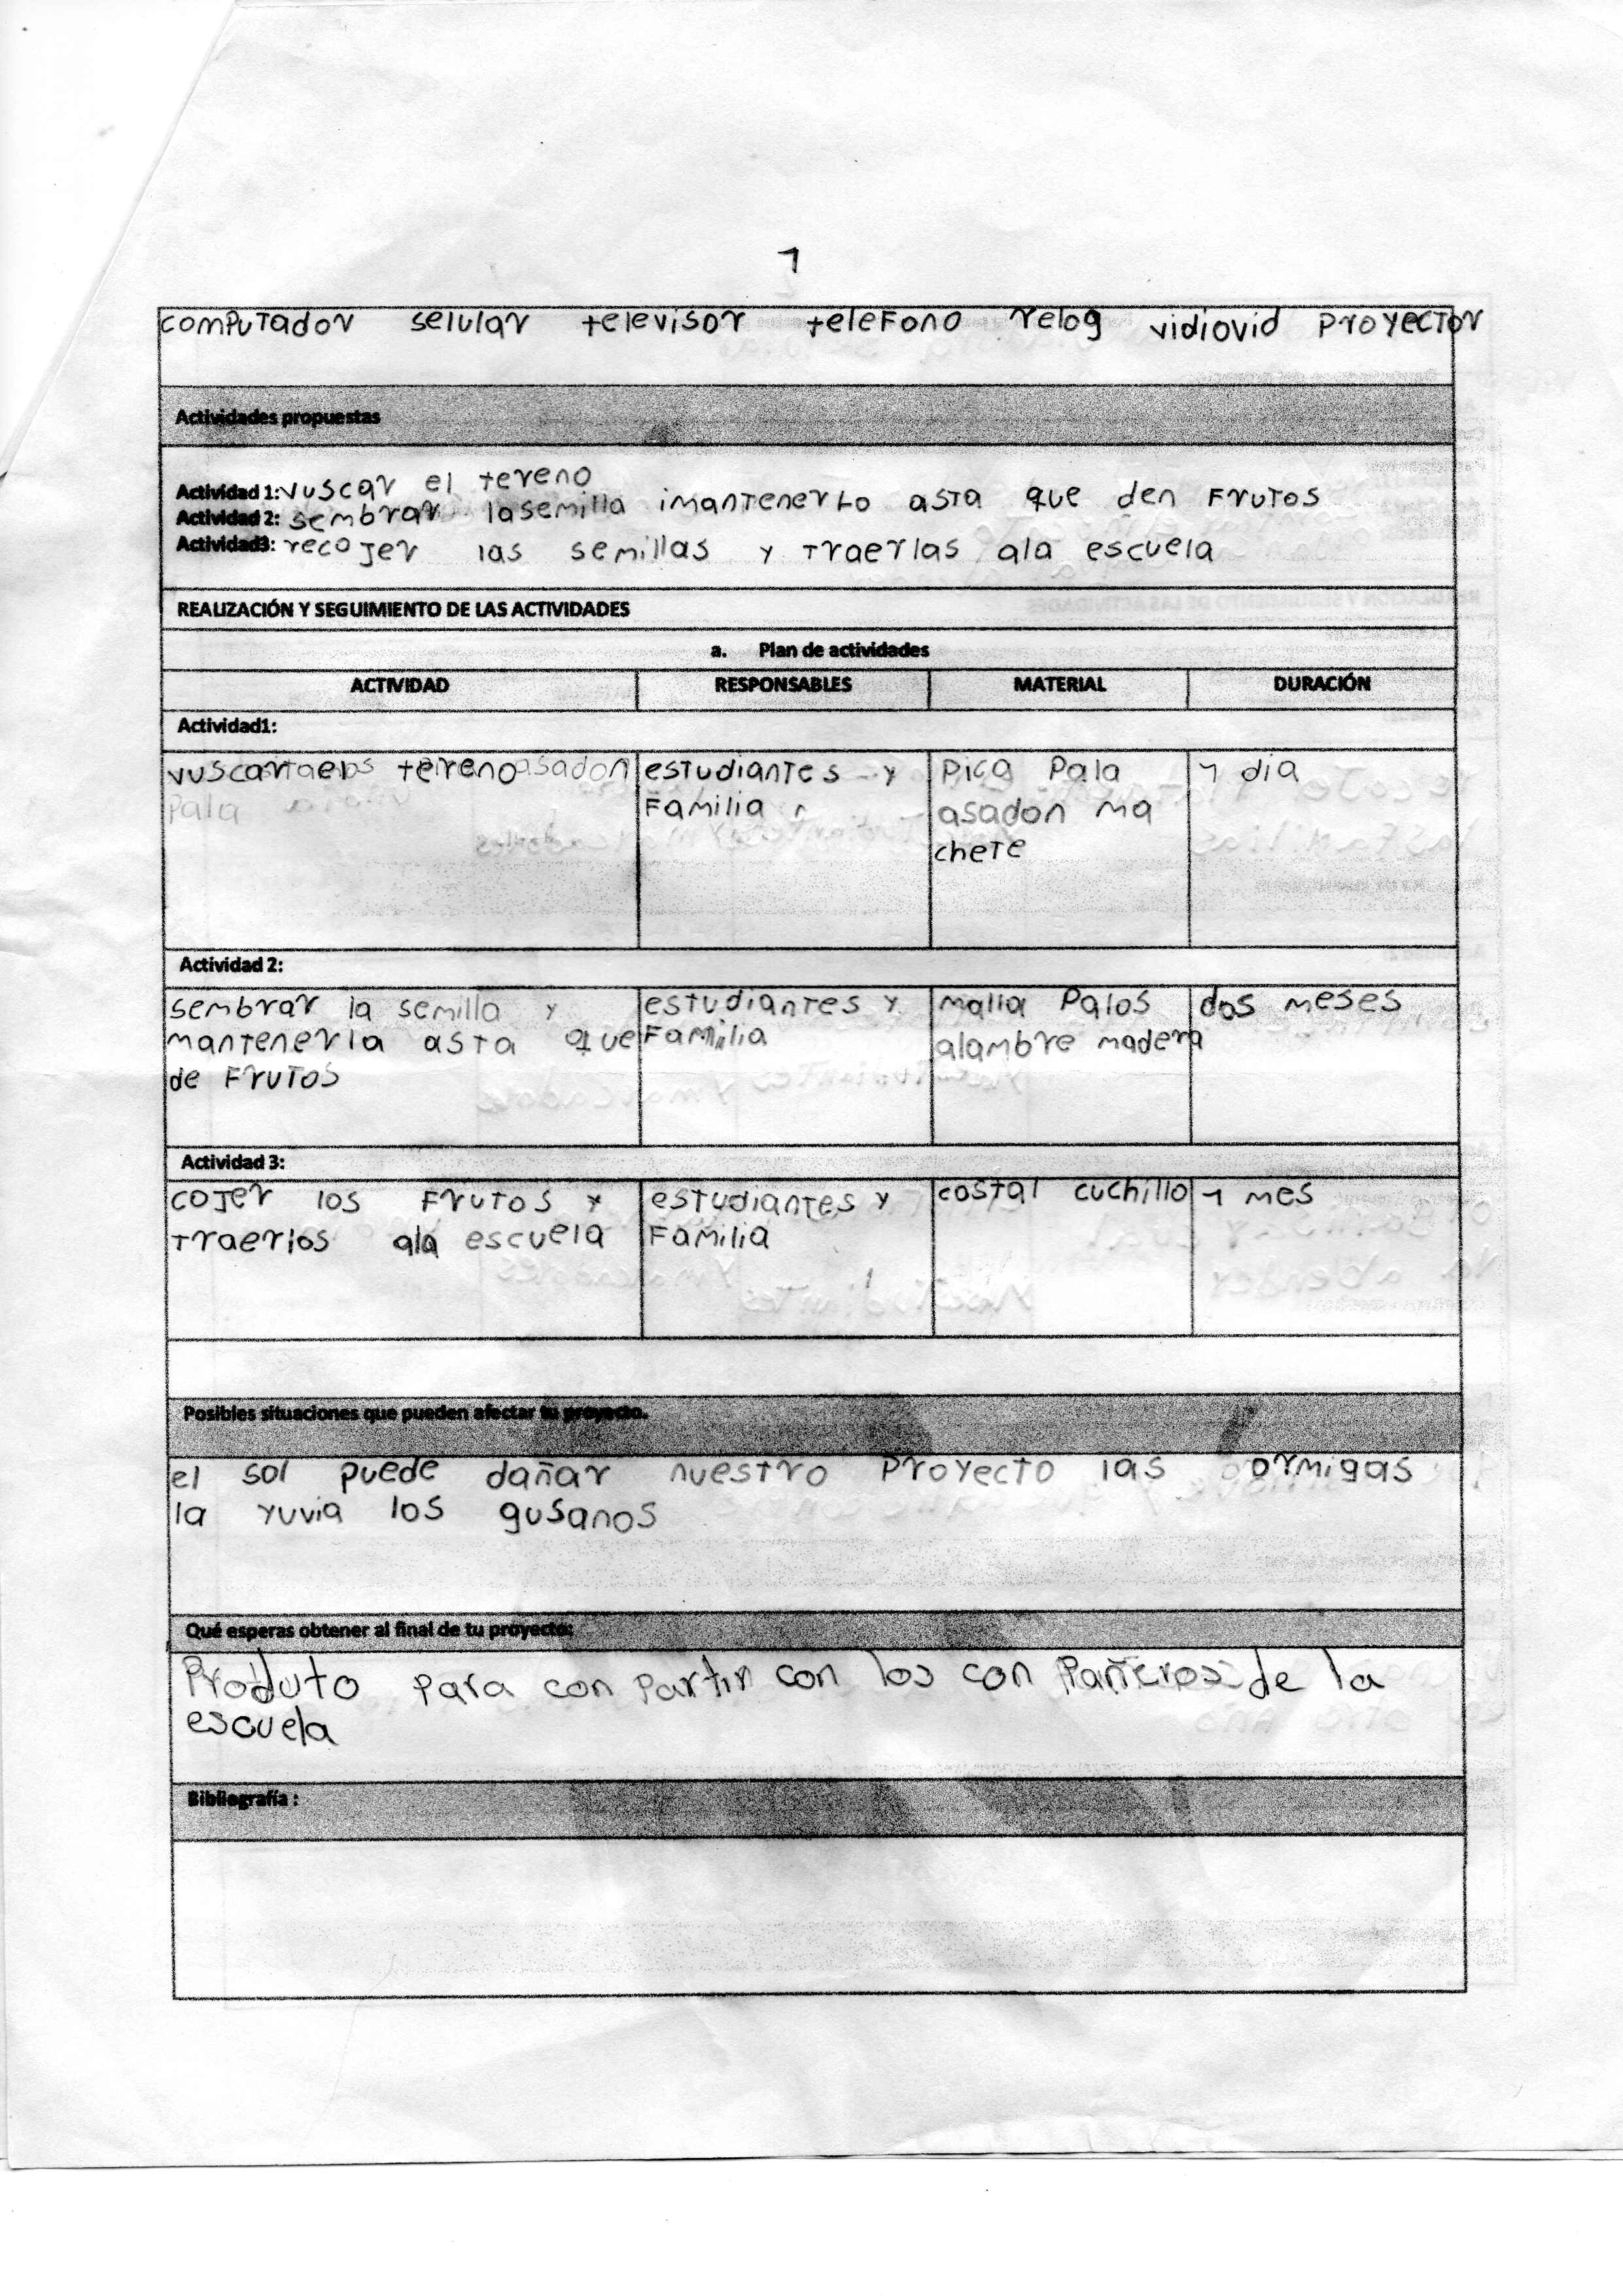 1
computador selular televisor telefono relog vidiovid proyector
Actividades propuestas
Actividad 1: vuscar el tereno
Actividad 2: sembrar lasemilla imantenerlo asta que den frutos
Actividad3: recojer las semillas y traerlas ala escuela
REALIZACIÓN Y SEGUIMIENTO DE LAS ACTIVIDADES
a. Plan de actividades
ACTIVIDAD RESPONSABLES MATERIAL DURACIÓN
Actividad1:
vuscar tereno asadon estudiantes y pica pala 1 dia
pala familia asadon ma
chete
Actividad 2:
sembrar la semilla y estudiantes y malla palos dos meses
mantenerla asta que familia alambre madera
de frutos
Actividad 3:
cojer los frutos y estudiantes y costal cuchillo 1 mes
traerlos ala escuela familia
Posibles situaciones que pueden afectar tu proyecto.
el sol puede dañar nuestro proyecto las ormigas
la yuvia los gusanos
Qué esperas obtener al final de tu proyecto:
Produto para con partir con los con pañeros de la
escuela
Bibliografía :